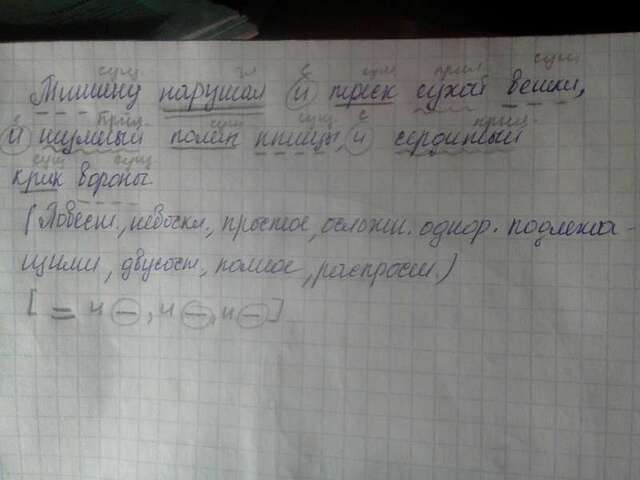 сущ гл с сущ прил сущ
Тишину нарушал и треск сухой ветки,
с прил сущ сущ с прил
и шумный полёт птицы, и
сущ сущ
крик вороны.
(Повест., невоскл., простое, осложн. однор. подлежа-
щими, двусост., полное, распростр.)
[= и —, и —, и —].